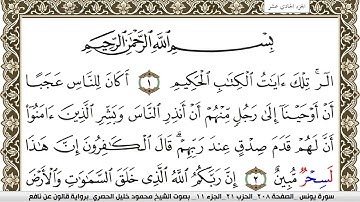 الجزء الحادي عشر
بِسْمِ اللَّهِ الرَّحْمَٰنِ الرَّحِيمِ
الٓرۚ تِلْكَ ءَايَٰتُ الْكِتَٰبِ الْحَكِيمِ ١ أَكَانَ لِلنَّاسِ عَجَبًا
أَنْ أَوْحَيْنَآ إِلَىٰ رَجُلٍ مِّنْهُمُۥٓ أَنْ أَنذِرِ النَّاسَ وَبَشِّرِ الَّذِينَ ءَامَنُوٓا۟
أَنَّ لَهُمْ قَدَمَ صِدْقٍ عِندَ رَبِّهِمْۖ قَالَ الْكَٰفِرُونَ إِنَّ هَٰذَا
لَسِحْرٌ مُّبِينٌ ٢ إِنَّ رَبَّكُمُ اللَّهُ الَّذِى خَلَقَ السَّمَٰوَٰتِ وَالْأَرْضَ
سورة يونس _ الصفحة ٢٠٨_ الحزب ٢١_ الجزء ١١ _ بصوت الشيخ محمود خليل الحصري_ برواية قالون عن نافع